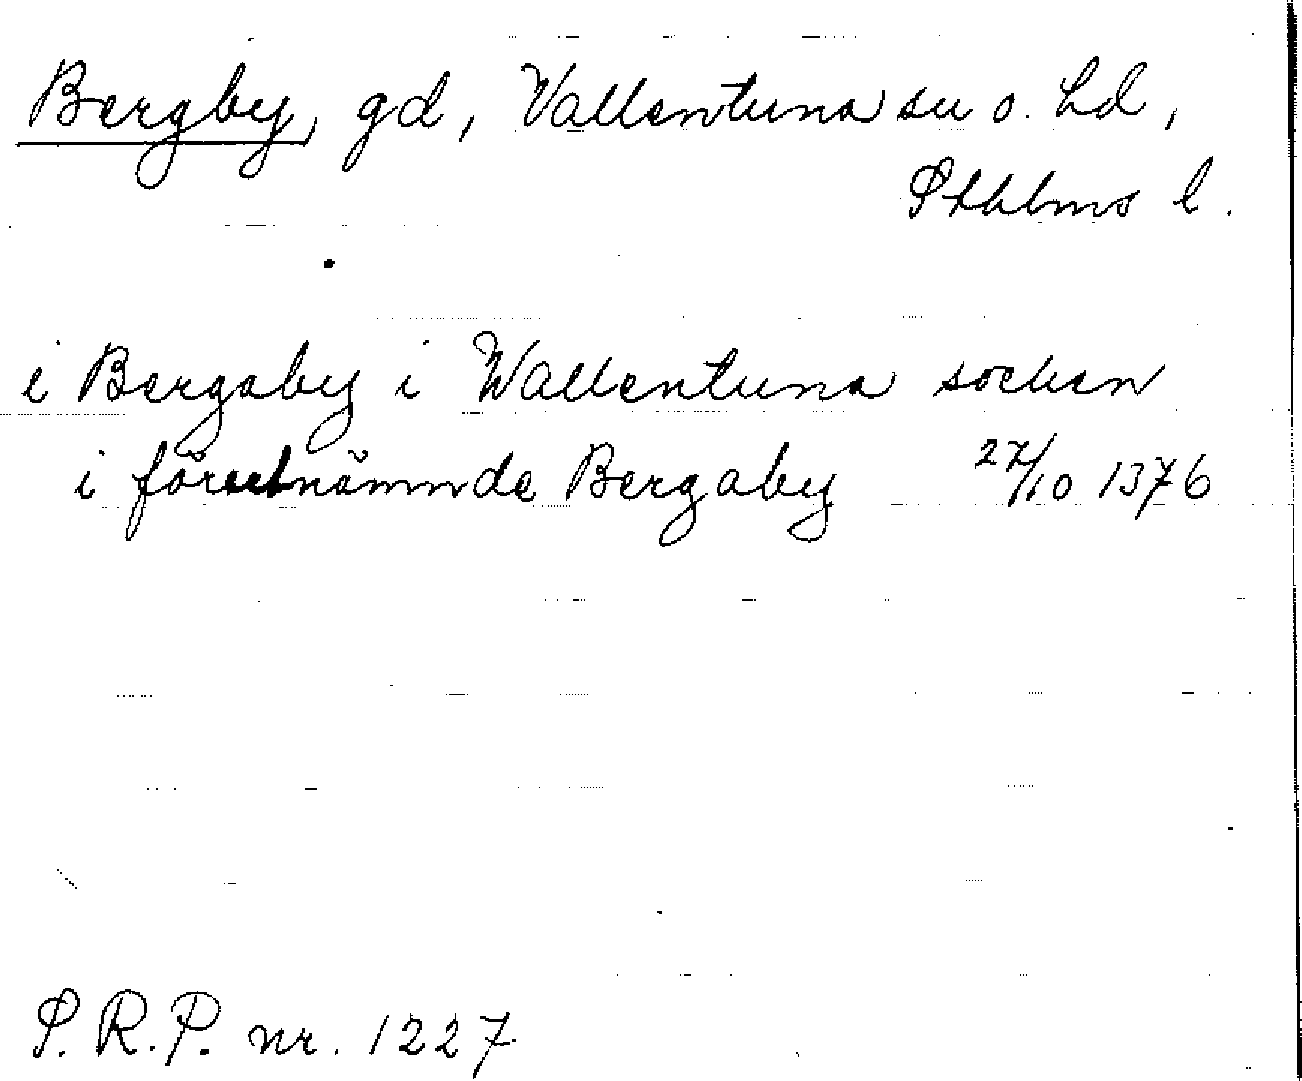 Bergby, gd, Vallentuna sn o. hd,
Sthlms l.
i Bergaby i Wallentuna socken
i förnämnde Bergaby 27/10 1376
S.R.P. nr. 1227